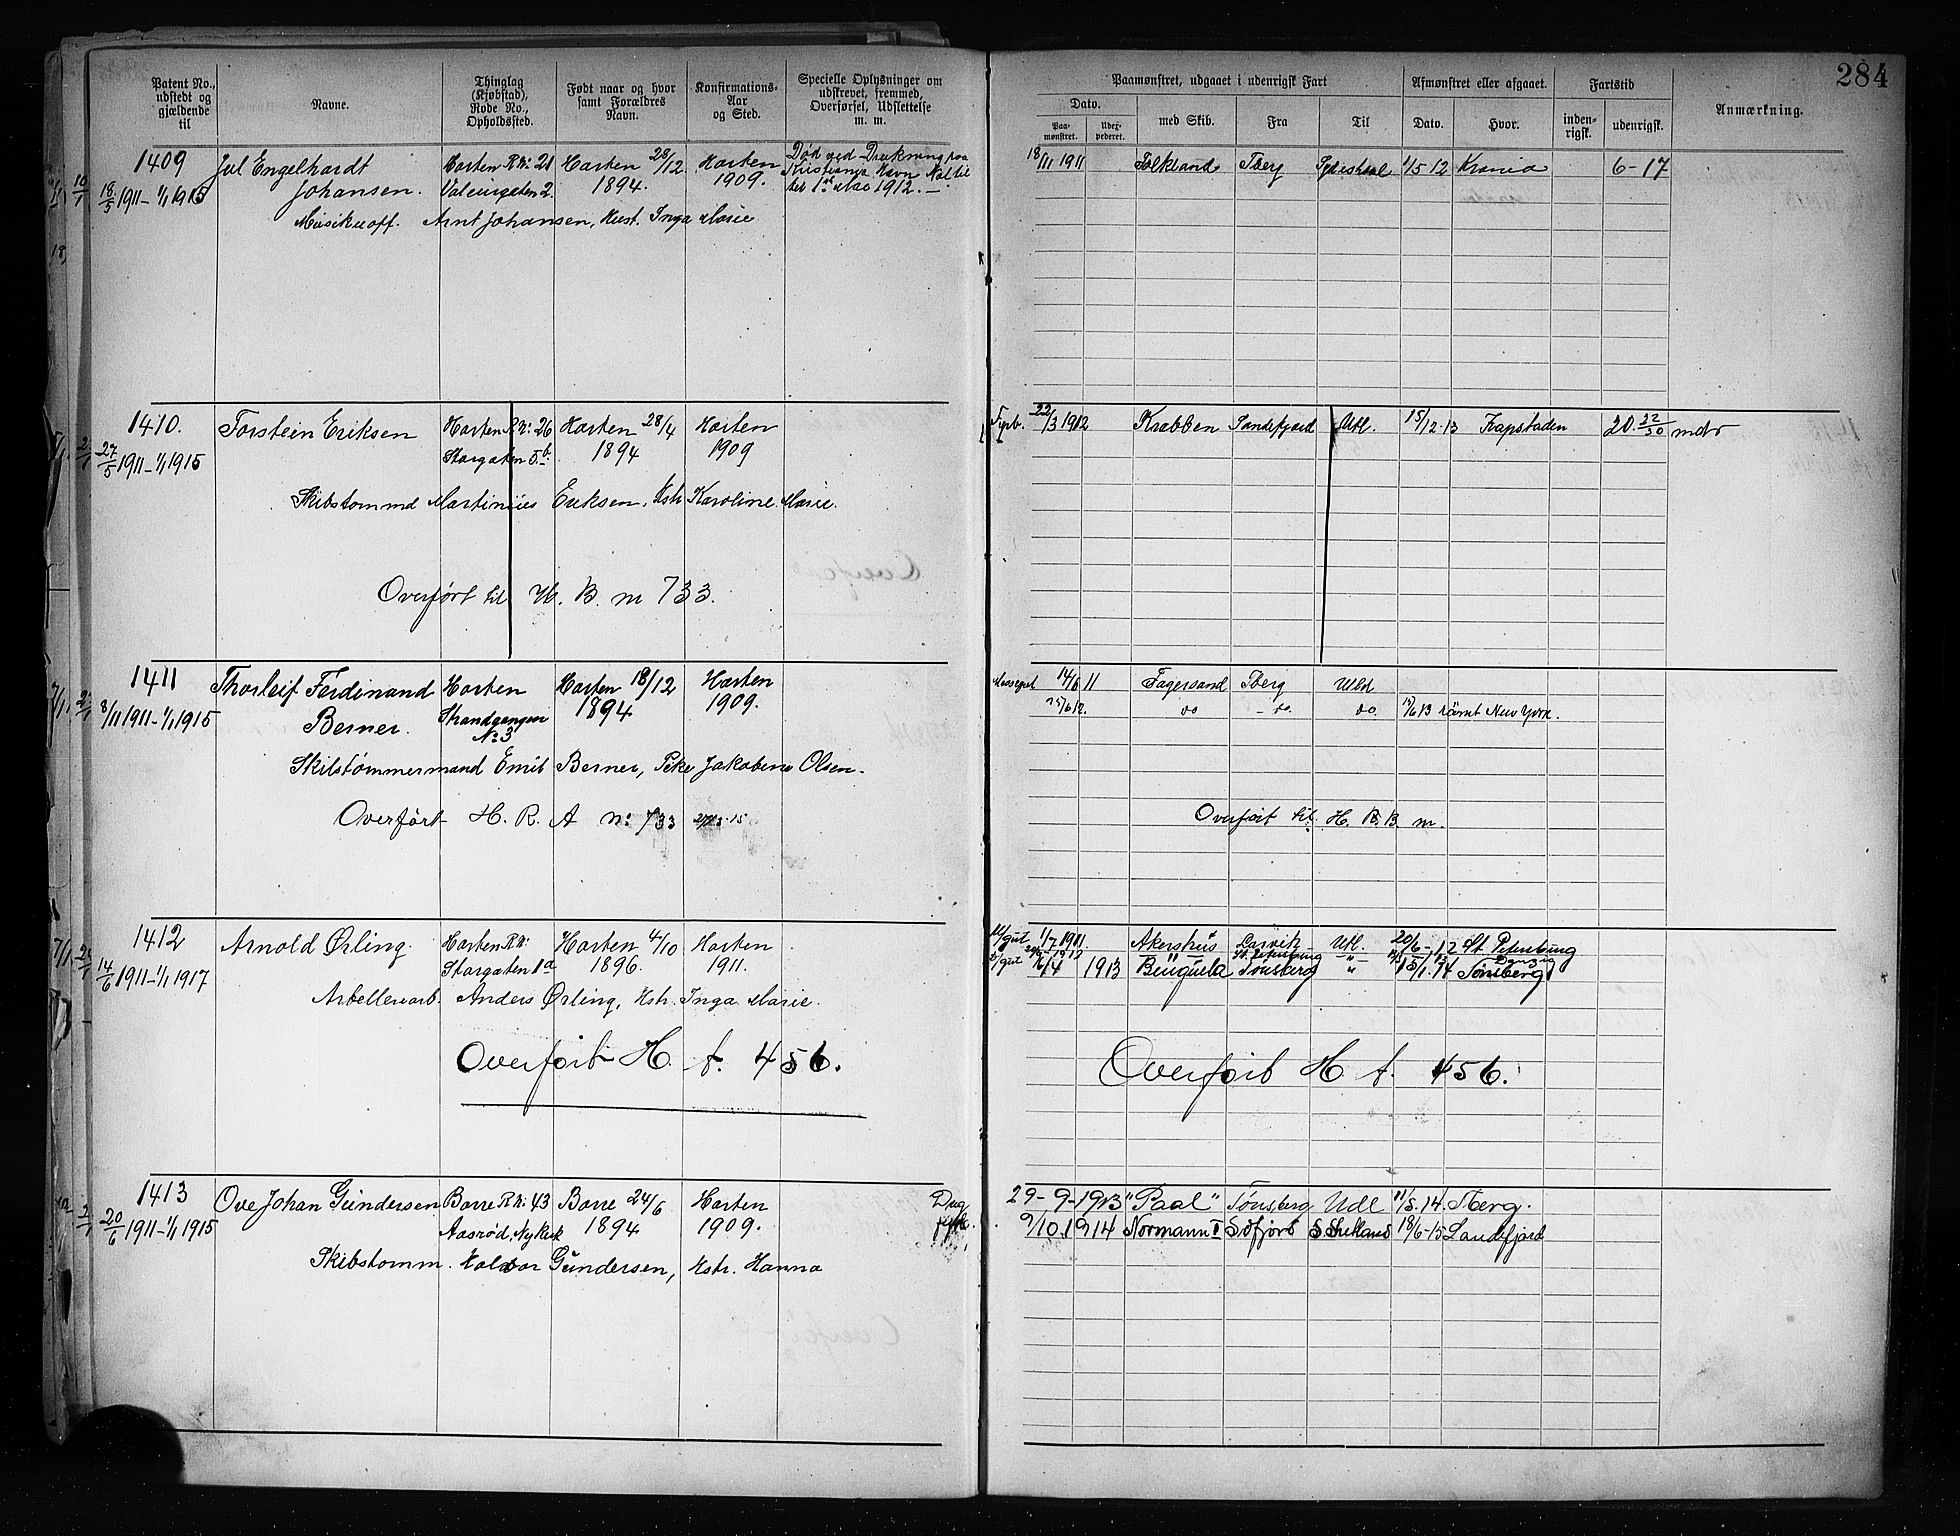 284
Patent No., udstedt og gjældende til
Navne.
Thinglag (Kjøbstad), Rode No., Opholdssted.
Født naar og hvor samt Forældres Navn.
Konfirmations- Aar og Sted.
Specielle Oplysninger om udskrevet, fremmed, Overførsel, Udslettelse m. m.
Paamønstret, udgaaet i udenrigsk Fart
Afmønstret eller afgaaet.
Fartstid
Anmærkning.
Dato.
med Skib.
Fra
Til
Dato.
Hvor.
inden- rigsk.
udenrigsk.
Paa- mønstret.
Udex- pederet.
1409
Jul Engelhardt Horten R.№: 21 Horten 28/12 Horten Død ved Drukning paa
Johansen. 1894. 1909. Kristiania Havn Nat til
18/5 1911 - 1/1 1915 Valeurgaten 2. 1ste Mai 1912. —
Musikuoff. Arnt Johansen, Hust. Inga Marie
18/11 1911 Folkvard Tberg 1/5 12 Krania 6-17
1410.
Torstein Eriksen Horten R.№: 26 Horten 28/4 Horten
27/5 1911 - 1/1 1915 Storgaten 5.b. 1894 1909
Skibstømmd Martinius Eriksen, Hstr. Karoline Marie.
Overført til H. B. nr 733.
Fyrb. 22/3 1912 Krabben Sandefjord Utl. 15/12 13 Kapstaden 20. 22/30 mdr
1411
Thorleif Ferdinand Horten Horten 18/12 Horten
8/11 1911 - 1/1 1915 Berner. Strandgangen №: 3 1894 1909.
Skibstømmermand Emil Berner, Pike Jakobine Olsen.
Overført H. R. A №: 733
14/6 11 Fagersand Tberg Utld
25/6 12. do - do. do. 13 rømt New York.
Overført til H. R. B. nr.
1412
Arnold Ørling. Horten R.№: Horten 4/10 Horten
14/6 1911 - 1/1 1917 Storgaten 1a 1896. 1911.
Arbeller arb. Anders Ørling, Hstr. Inga Marie.
Overført H. A. 456.
1/7 1911. Akershus Larvik Utl. 20/6 - 12 St Petersburg
St. Petersburg - " - Danzig
16/4 1913 Benguela Tønsberg " 15/1. 14 Tønsberg
Overført H A. 456.
1413
Ove Johan Gundersen Borre R.№: 43 Borre 24/6 Horten
20/6 1911 - 1/1 1915 Aasrød, Nykirk 1894 1909.
Skibstømm. Halvor Gundersen, Hstr. Hanna
29 - 9 - 1913 "Paal" Tønsberg Udl 11/5. 14. Tberg.
9/10. 1914 Normann I Sdfjord S Shetland 18/6-15 Sandefjord